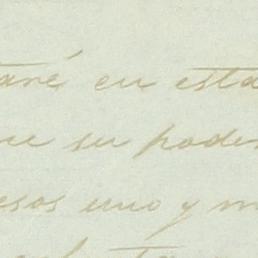 taré en esta
en su poder
esos uno y m